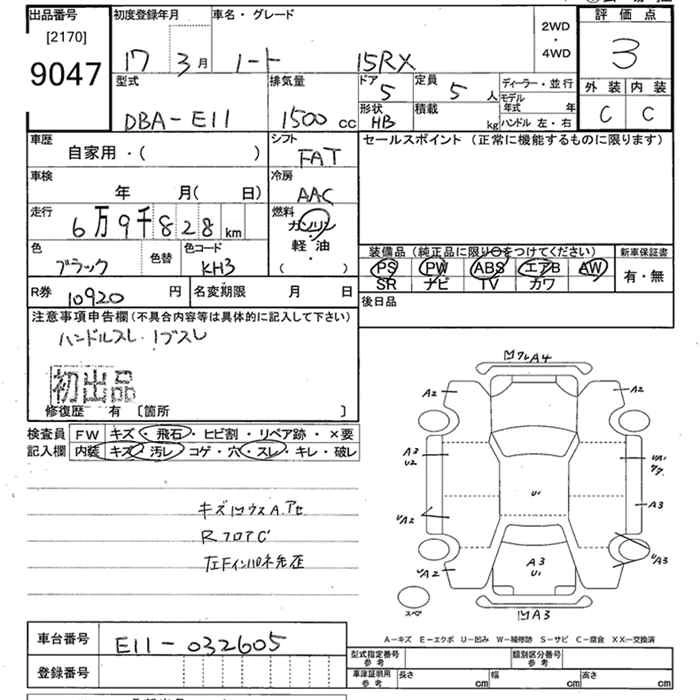 出品番号
[2170]
9047
初度登録年月
17 3月
車名・グレード
ノート 15RX
2WD
・
4WD
評価点
3
外装 内装
C C
型式
DBA-E11
排気量
1500cc
ドア
5
定員
5人
形状
HB
積載
kg
ディーラー・並行
モデル年式 年
ハンドル 左・右
車歴
自家用・( )
シフト
FAT
セールスポイント (正常に機能するものに限ります)
車検
年 月( 日)
冷房
AAC
走行
6万9千828km
燃料
ガソリン
軽・油
( ・ )
色
ブラック
色替
色コード
KH3
装備品(純正品に限り○をつけてください)
PS PW ABS エアB AW
SR ナビ TV カワ
新車保証書
有・無
R券 10920円
名変期限 月 日
後日品
注意事項申告欄(不具合内容等は具体的に記入して下さい)
ハンドルスレ・
初出品
修復歴 有 [箇所 ]
検査員
記入欄
FW キズ・飛石・ヒビ割・リペア跡・×要
内装 キズ・汚レ・コゲ・穴・スレ・キレ・破レ
A4
A2 A2
A3
U2
U1
A3
UA2
UA2
UA3
A3
U1
スペア
A3
A-キズ E-エクボ U-凹み W-補修跡 S-サビ C-腐食 XX-交換済
車台番号
E11-032605
登録番号
型式指定番号
参考
類別区分番号
参考
車庫証明用
参考
長さ cm
幅 cm
高さ cm